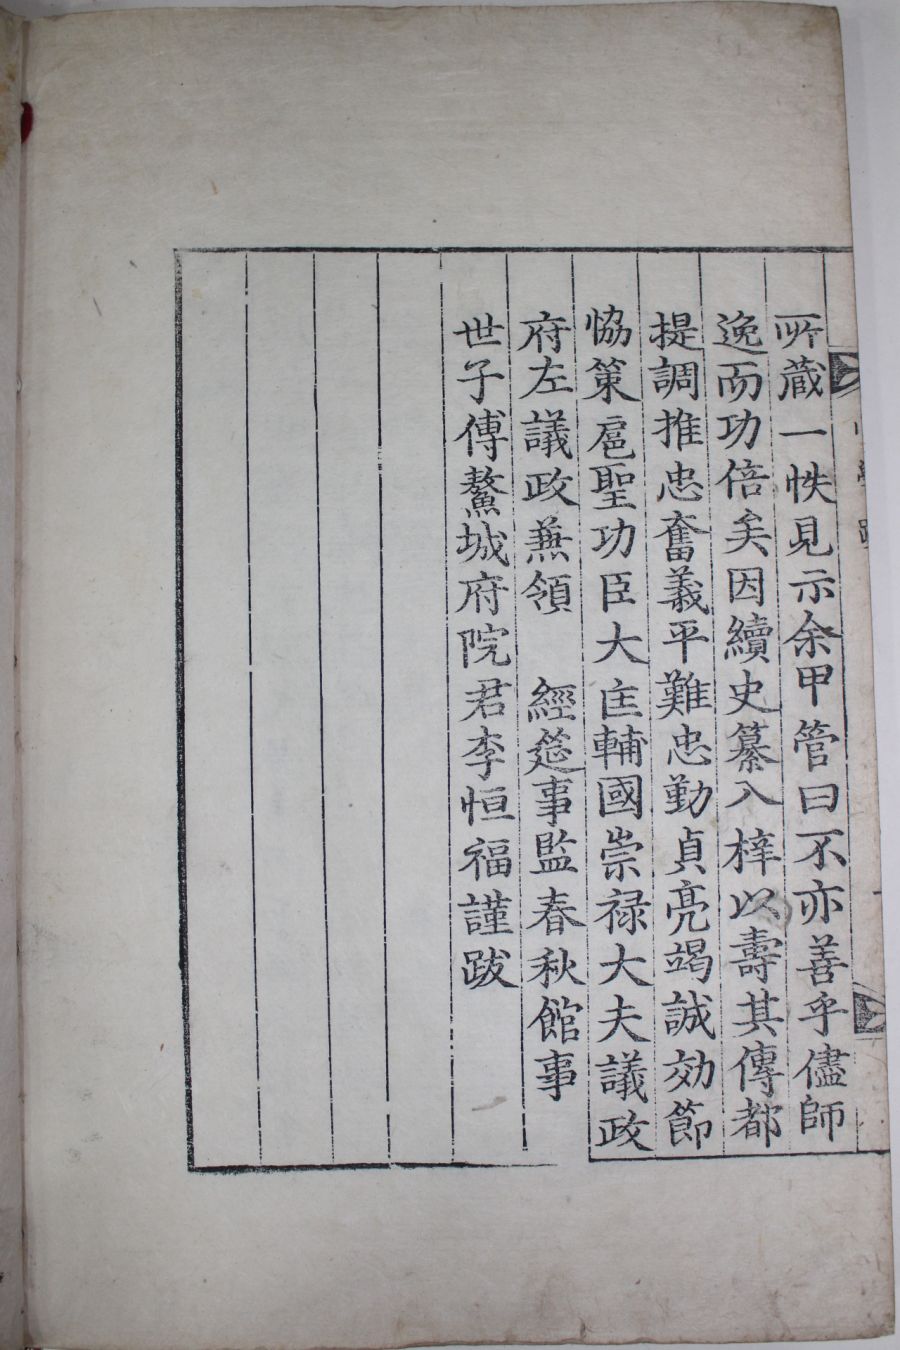 所藏一帙見示余甲管曰不亦善乎儘師
逸而功倍矣因續史纂入梓以壽其傳都
提調推忠奮義平難忠勤貞亮竭誠効節
恊策扈聖功臣大匡輔國崇禄大夫議政
府左議政兼領　經筵事監春秋館事
世子傅鰲城府院君李恒福謹跋